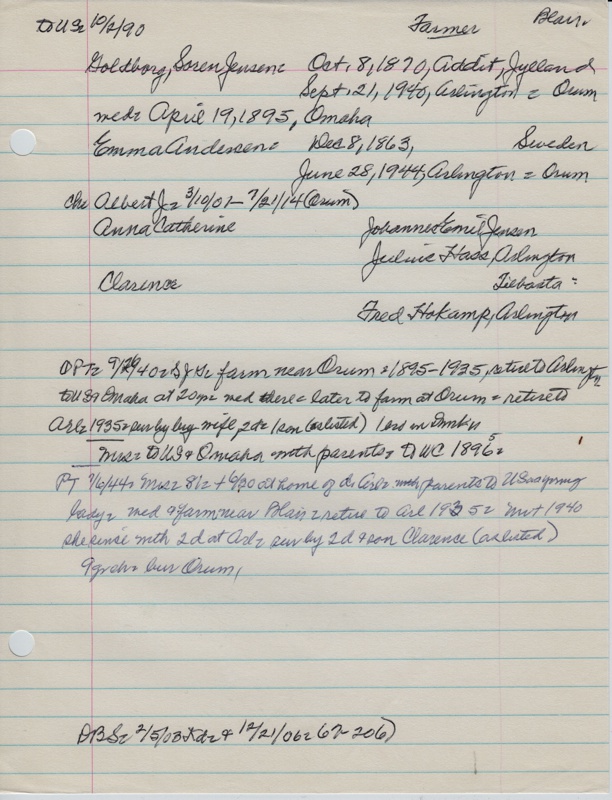 to US= 10/2/90 Farmer Blair.
Goldborg, Soren Jensen= Oct. 8, 1870, Addit, Jylland
Sept. 21, 1940, Arlington = Orum
med= April 19, 1895, Omaha
Emma Andersen= Dec 8, 1863, Sweden
June 28, 1944, Arlington = Orum
chn Albert J= 3/10/01 - 7/21/14 (Orum)
Anna Catherine Johannes Emil Jensen
Hass, Arlington
Clarence
Fred Hokamp, Arlington
DPT= 9/26/40= SJG= farm near Orum = 1895-1935, retire to Arlington
to US= Omaha at 20yr= med there = later to farm at Orum = retire to
Arl= 1935= sur by wife, 2d= 1 son (as listed)
Mrs= to US & Omaha with parents= to WC 1896=
PT 7/6/44= Mrs= 81= + 6/30 at home of d= Arl= with parents to US as young
lady= med & farm near Blair = retire to Arl 1935= Mr + 1940
she since with 2d at Arl= sur by 2d & son Clarence (as listed)
9 grch= bur Orum,
DBS= 2/5/03 & 12/21/06= 67-206)